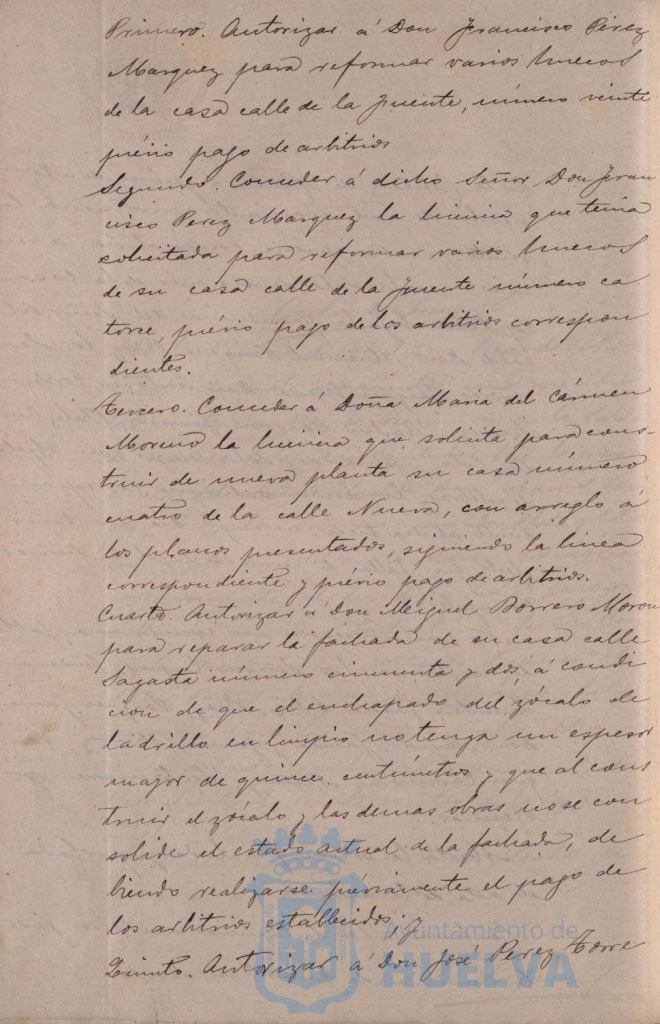 Primero. Autorizar á Don Francisco Pérez
Marquez para reformar varios huecos
de la casa calle de la Fuente, número veinte
prévio pago de arbitrios
Segundo. Conceder á dicho Señor Don Fran
cisco Perez Marquez la licencia que tenia
solicitada para reformar varios huecos
de su casa calle de la Fuente número ca
torce, prévio pago de los arbitrios correspon
dientes.
Tercero. Conceder á Doña Maria del Cármen
Moreno la licencia que solicita para cons-
truir de nueva planta su casa número
cuatro de la calle Nueva, con arreglo á
los planos presentados, siguiendo la linea
correspondiente y prévio pago de arbitrios.
Cuarto. Autorizar á Don Miguel Borrero Moron
para reparar la fachada de su casa calle
Sagasta número cincuenta y dos, á condi
cion de que el enchapado del zócalo de
ladrillo en limpio no tenga un espesor
mayor de quince centímetros y que al cons
truir el zócalo y las demas obras no se con
solide el estado actual de la fachada, de
biendo realizarse préviamente el pago de
los arbitrios establecidos; y
Quinto. Autorizar á Don José Perez Torre
Ayuntamiento de
HUELVA